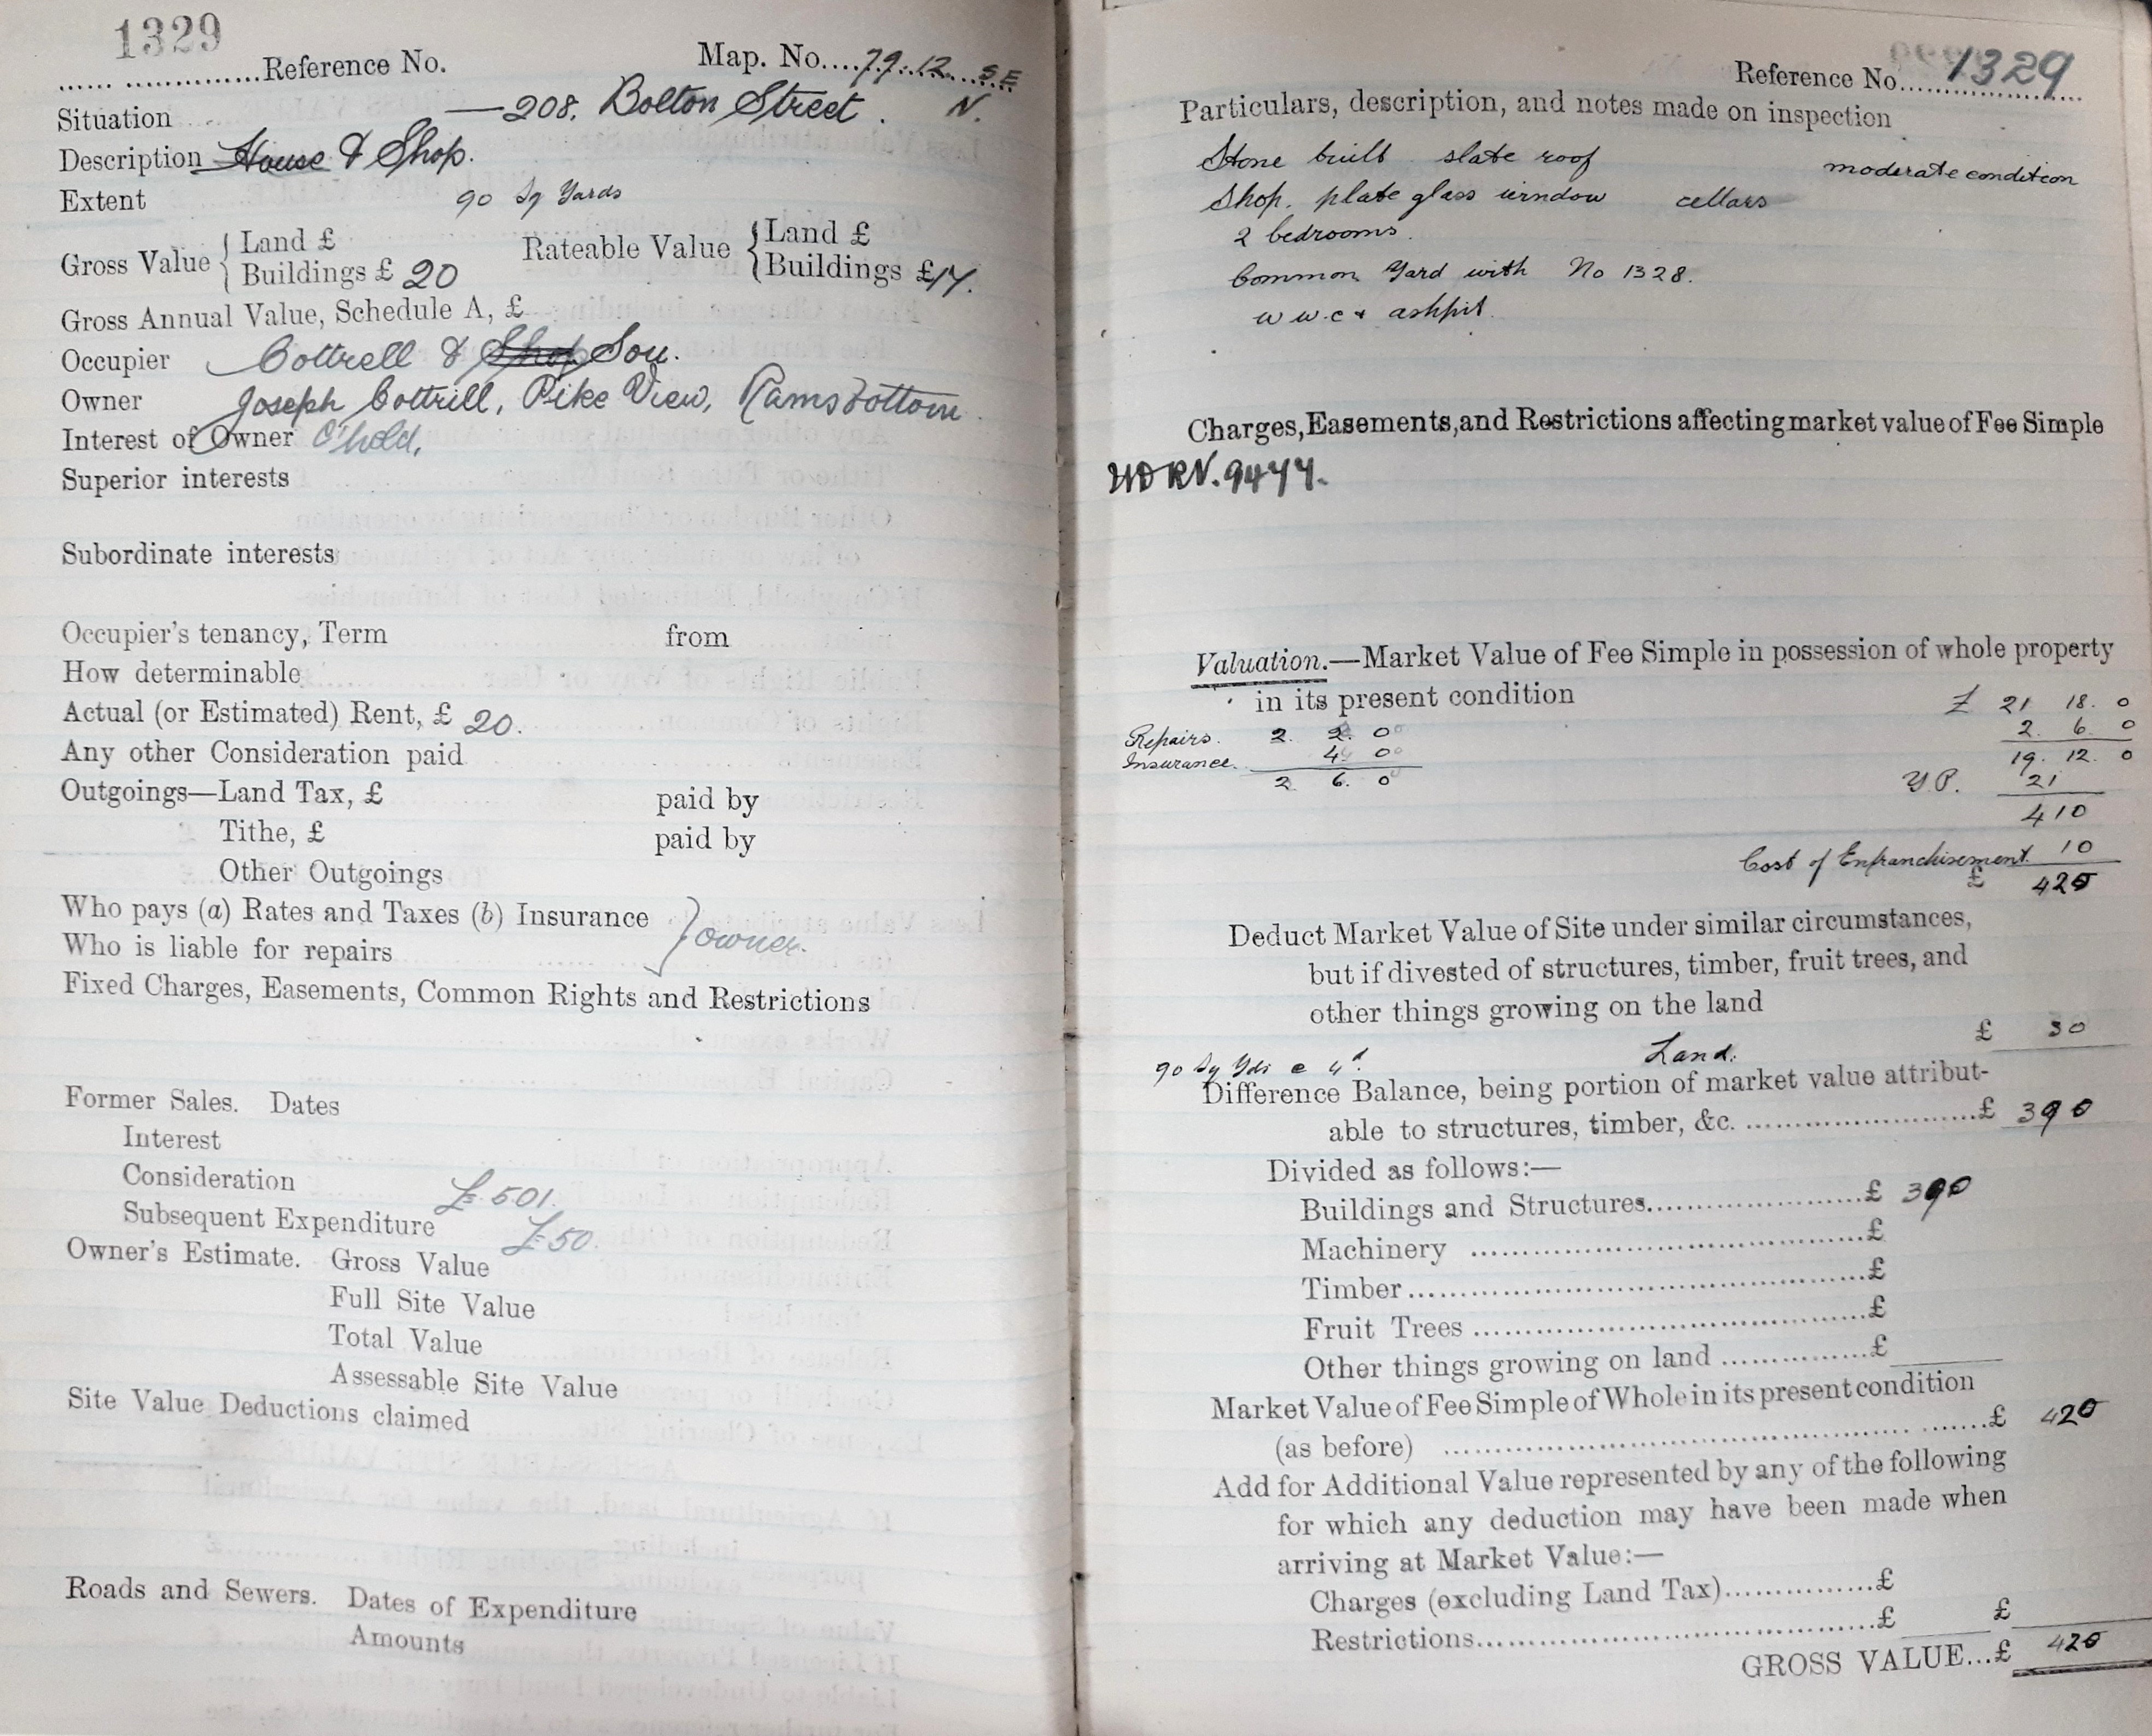 1329
Reference No. Map. No. 79.12. S.E
Situation —208, Bolton Street. N.
Description House & Shop.
Extent 90 Sq Yards
Gross Value { Land £ Rateable Value { Land £
Buildings £ 20 Buildings £17.
Gross Annual Value, Schedule A, £
Occupier Cottrell & Shop Son.
Owner Joseph Cottrill, Pike View, Ramsbottom
Interest of Owner C'hold,
Superior interests
Subordinate interests
Occupier's tenancy, Term from
How determinable
Actual (or Estimated) Rent, £ 20.
Any other Consideration paid
Outgoings—Land Tax, £ paid by
Tithe, £ paid by
Other Outgoings
Who pays (a) Rates and Taxes (b) Insurance } owner.
Who is liable for repairs
Fixed Charges, Easements, Common Rights and Restrictions
Former Sales. Dates
Interest
Consideration £501.
Subsequent Expenditure £50.
Owner's Estimate. Gross Value
Full Site Value
Total Value
Assessable Site Value
Site Value Deductions claimed
Roads and Sewers. Dates of Expenditure
Amounts
Reference No. 1329
Particulars, description, and notes made on inspection
Stone built slate roof moderate condition
Shop. plate glass window cellars
2 bedrooms.
Common Yard with No 1328.
w w.c & ashpit.
Charges, Easements, and Restrictions affecting market value of Fee Simple
Valuation.—Market Value of Fee Simple in possession of whole property
in its present condition £ 21 18. 0
Repairs. 2. 2. 0 2. 6. 0
Insurance. 4 0 19. 12. 0
2 6. 0 Y.P. 21
410
Cost of Enfranchisement. 10
£ 420
Deduct Market Value of Site under similar circumstances,
but if divested of structures, timber, fruit trees, and
other things growing on the land
£ 30
90 Sq Yds @ 4d. Land.
Difference Balance, being portion of market value attribut-
able to structures, timber, &c. £ 390
Divided as follows:—
Buildings and Structures £ 390
Machinery £
Timber £
Fruit Trees £
Other things growing on land £
Market Value of Fee Simple of Whole in its present condition
(as before) £ 420
Add for Additional Value represented by any of the following
for which any deduction may have been made when
arriving at Market Value:—
Charges (excluding Land Tax) £
Restrictions £ £
GROSS VALUE...£ 420